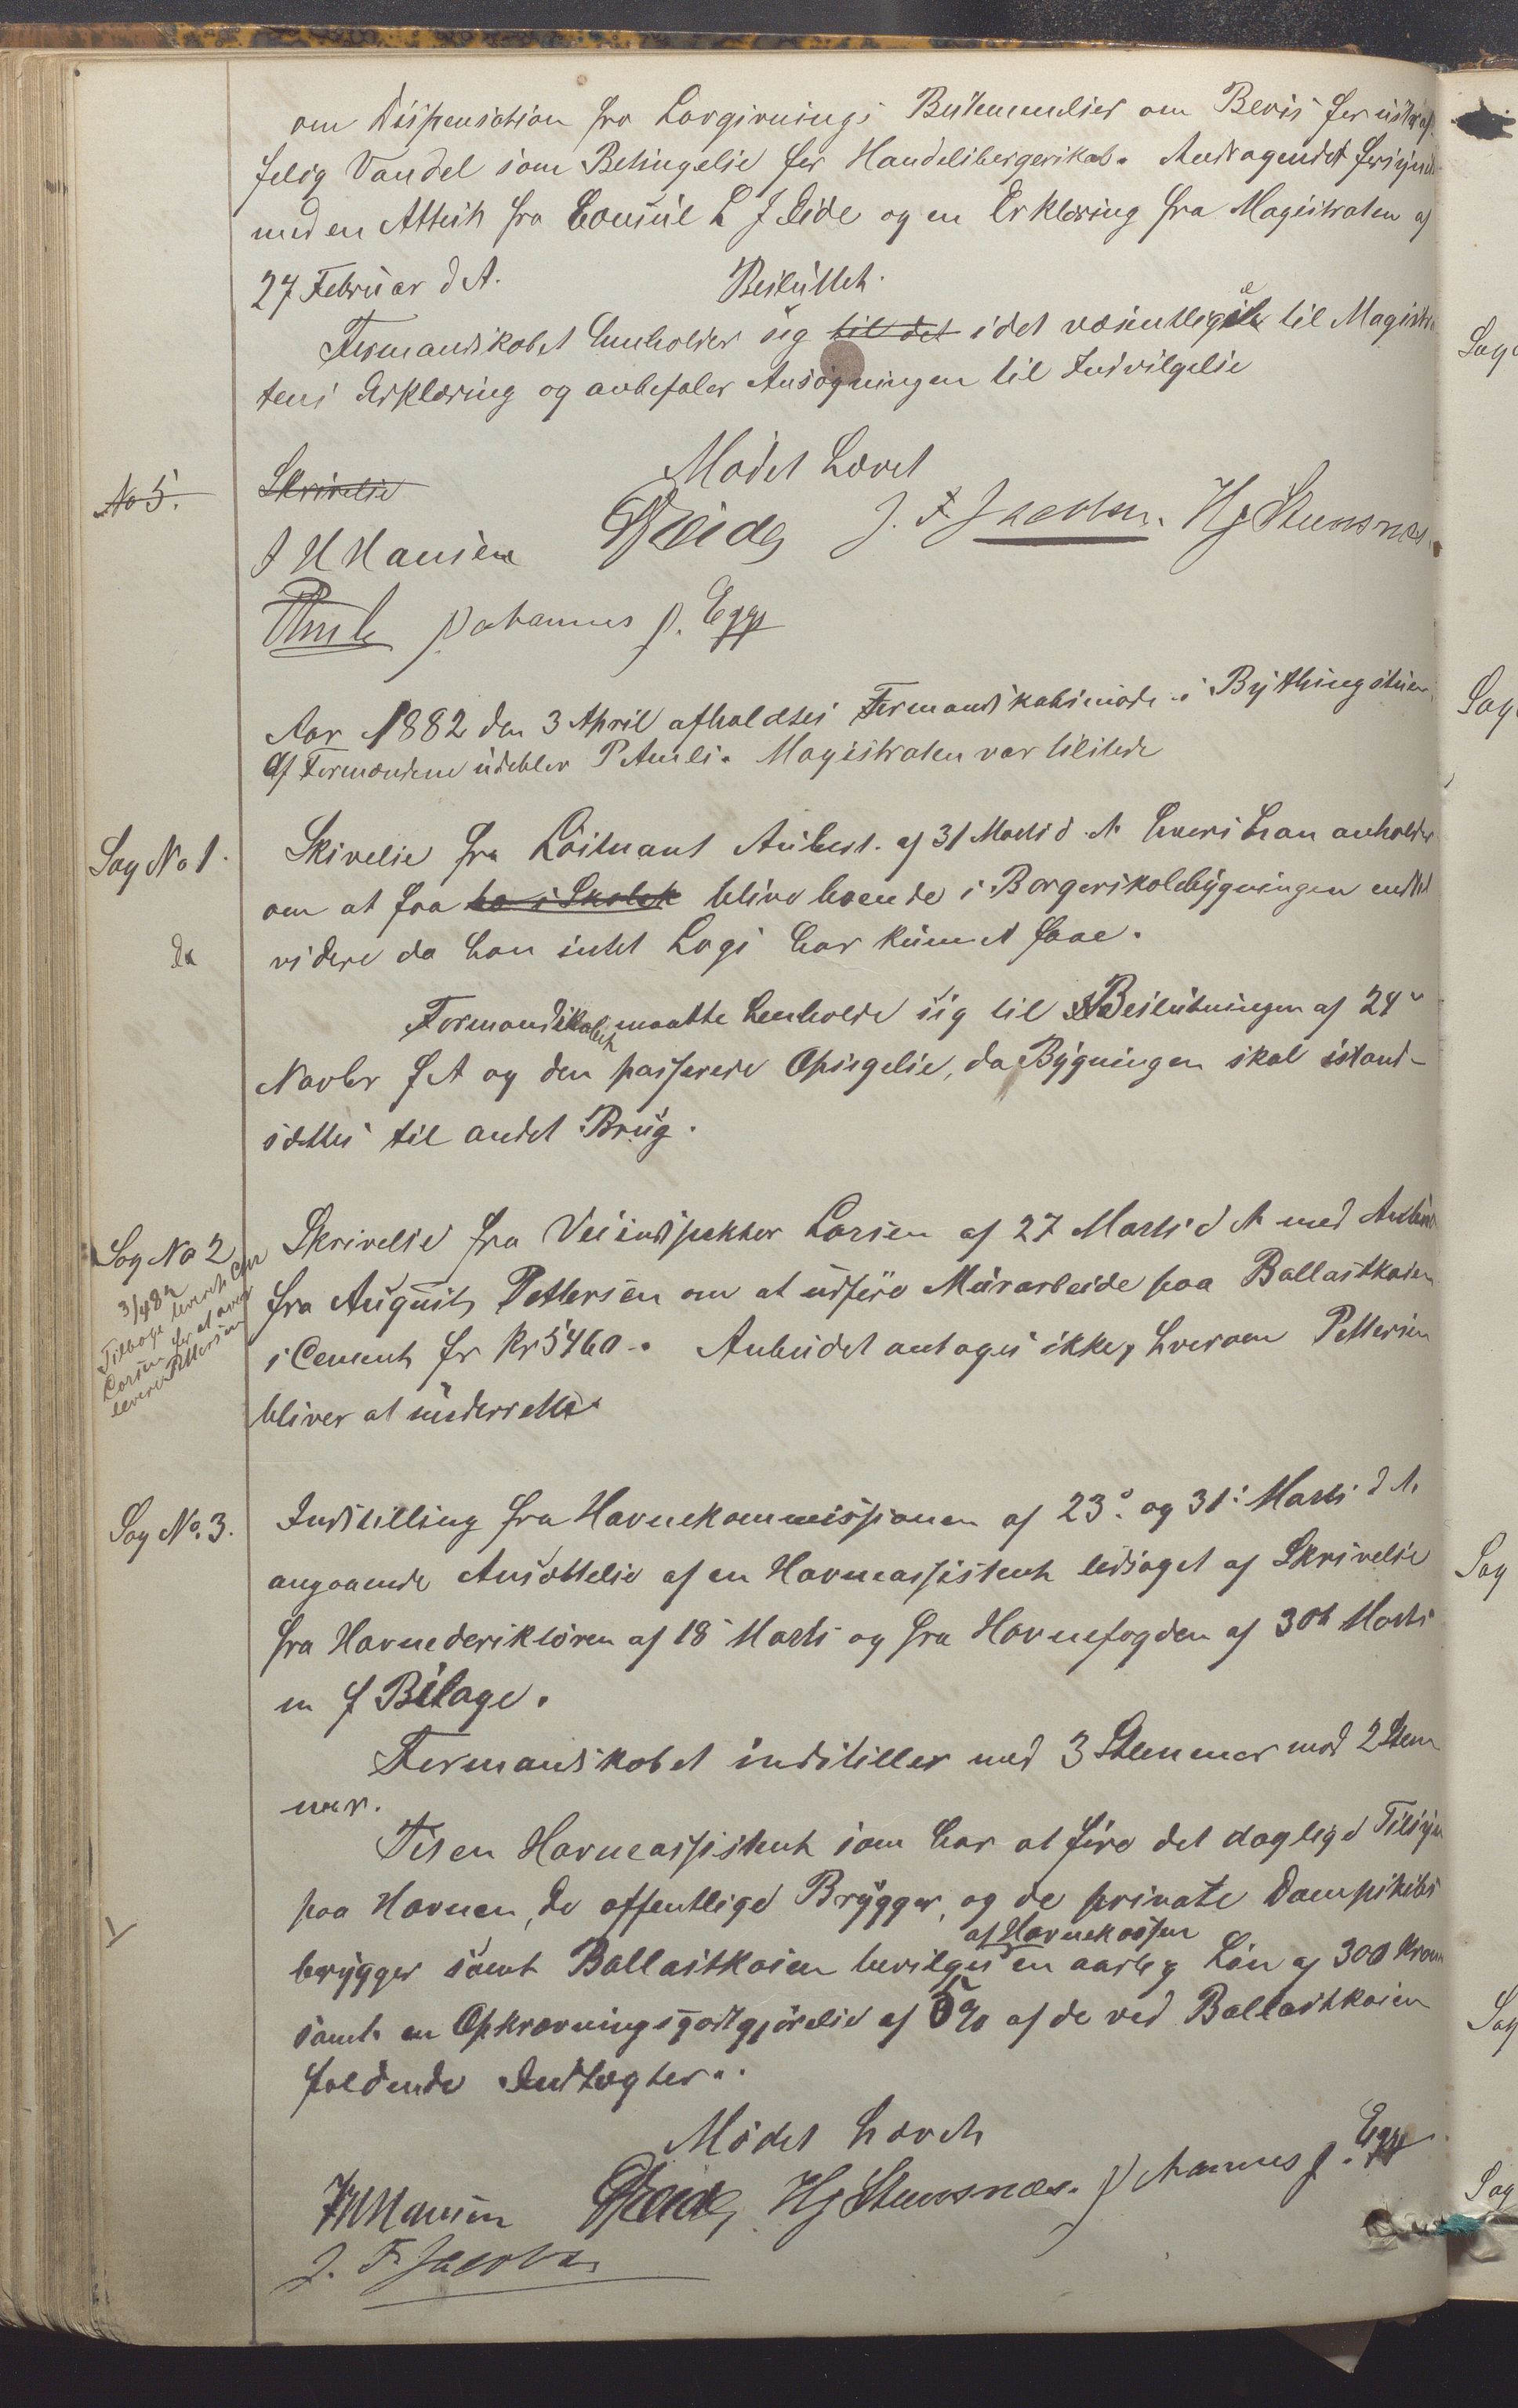 om Dispensation fra Lovgivnings Bestemmelser om Bevis for ustraf-
felig Vandel som Betingelse for Handelsborgerskab. Andragendet forsynet
med en Attest fra Consul L J Eide og en Erklæring fra Magistraten af
27 Februar d A. Besluttet.
Formandskabet henholder sig til det i det væsentlige til Magistra
tens Erklæring og anbefaler Ansøgningen til Indvilgelse
Mødet hævet
No 5. Skrivelse
J H Hansen J. F. Jacobsen. Hj Stumsnæs.
Johannes J. Egge
Aar 1882 den 3 April afholdtes Formandskabsmøde i Bythingstuen
Af Formændene udeblev P Amli. Magistraten var tilstede
Sag No 1. Skivelse fra Löitnant Aubert af 31 Marts d A hvori han anholder
om at faa bo i Skolek blive boende i Borgerskolebygningen indtil
videre da han intet Logi har kunnet faae.
Formandskabet maatte henholde sig til Beslutningen af 24
Novbr f A og den passerede Opsigelse, da Bygningen skal istand-
sættes til andet Brug.
Sag No 2 Skrivelse fra Veiindspektør Larsen af 27 Marts d A med Anbud
3/4 82
Tilbage leveret
Larsen for at over
levere Pettersen
fra August Pettersen om at udføre Murarbeide paa Ballastkaien
i Cement for Kr 5460.. Anbudet antages ikke, hvorom Pettersen
bliver at underrette.
Sag No. 3. Indstilling fra Havnekommissionen af 23. og 31. Marts d A.
angaaende Ansættelse af en Havneassistent ledsaget af Skrivelse
fra Havnederiktøren af 18 Marts og fra Havnefogden af 30t Marts
m f Bilage.
Formandskabet indstiller med 3 Stemmer mod 2 Stem
mer.
Til en Havneassistent som har at føre det daglige Tilsyn
paa Havnen, de offentlige Brygger, og de private Dampskibs
af Havnekassen
brygger samt Ballastkaien bevilges en aarlig Løn af 300 Kroner
samt en Opkrævningsgodtgjørelse af 5% af de ved Ballastkaien
faldende Indtægter..
Mødet hævet
J H Hansen Hj Stumsnæs. Johannes J. Egge
J. F. Jacobsen
Sag
Sag
Sag
Sag
Sag